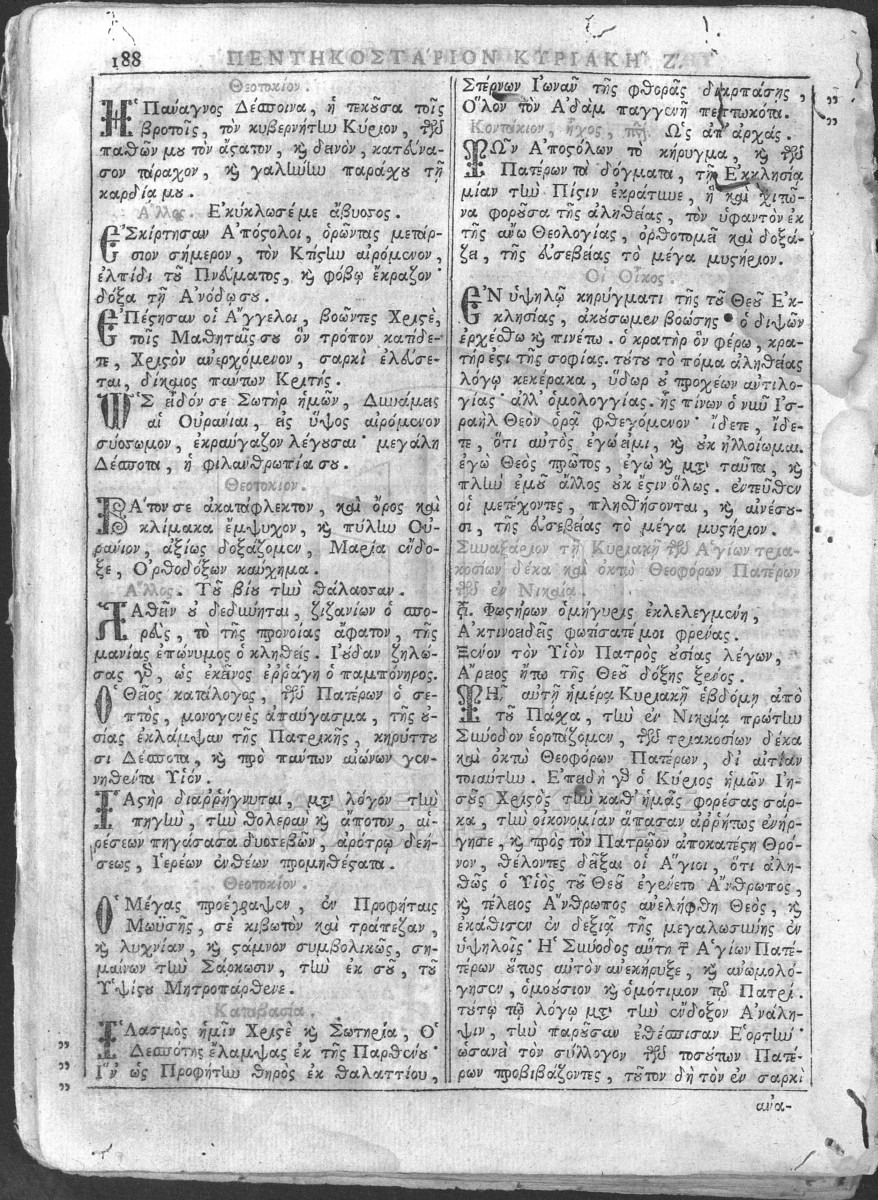 188 ΠΕΝΤΗΚΟΣΤΑΡΙΟΝ ΚΥΡΙΑΚΗ͂ Ζ.
Θεοτοκίον.
Ἡ Πάναγνος Δέσποινα, ἡ τεκοῦσα τοῖς
βροτοῖς, τὸν κυβερνήτην Κύριον, τῶν
παθῶν μου τὸν ἄστατον, κỳ δεινὸν, κατεύνα-
σον τάραχον, κỳ γαλήνην παράχου τῇ
καρδίᾳ μου.
Ἄλλος. Ἐκύκλωσέ με ἄβυσσος.
ἘΣκίρτησαν Ἀπόστολοι, ὁρῶντες μετάρ-
σιον σήμερον, τὸν Κτίστην αἰρόμενον,
ἐλπίδι τοῦ Πνεύματος, κỳ φόβῳ ἔκραζον·
δόξα τῇ Ἀνόδῳ σου.
ἘΠέστησαν οἱ Ἄγγελοι, βοῶντες Χριστὲ,
τοῖς Μαθηταῖς σου ὃν τρόπον κατίδε-
τε, Χριστὸν ἀνερχόμενον, σαρκὶ ἐλεύσε-
ται, δίκαιος πάντων Κριτής.
ὩΣ εἶδόν σε Σωτὴρ ἡμῶν, Δυνάμεις
αἱ Οὐράνιαι, εἰς ὕψος αἰρόμενον
σύσσωμον, ἐκραύγαζον λέγουσαι· μεγάλη
Δέσποτα, ἡ φιλανθρωπία σου.
Θεοτοκίον.
ΒΆτον σε ἀκατάφλεκτον, καὶ ὄρος καὶ
κλίμακα ἔμψυχον, κỳ πύλην Οὐ-
ράνιον, ἀξίως δοξάζομεν, Μαρία ἔνδο-
ξε, Ὀρθοδόξων καύχημα.
Ἄλλος. Τοῦ βίου τὴν θάλασσαν.
ΛΑθεῖν οὐ δεδύνηται, ζιζανίων ὁ σπο-
ρεὺς, τὸ τῆς προνοίας ἄφατον, τῆς
μανίας ἐπώνυμος ὁ κληθείς. Ἰούδαν ζηλώ-
σας γὰρ, ὡς ἐκεῖνος ἐῤῥάγη ὁ παμπόνηρος.
Ὁ Θεῖος κατάλογος, τῶν Πατέρων ὁ σε-
πτὸς, μονογενὲς ἀπαύγασμα, τῆς οὐ-
σίας ἐκλάμψαν τῆς Πατρικῆς, κηρύττου-
σι Δέσποτα, κỳ πρὸ πάντων αἰώνων γεν-
νηθέντα Υἱόν.
ΓΑστὴρ διαῤῥήγνυται, μετὰ λόγον τὴν
πηγὴν, τὴν θολερὰν κỳ ἄποτον, αἱ-
ρέσεων πηγάσασα δυσσεβῶν, ἀρότρῳ δεή-
σεως, Ἱερέων ἐνθέων προμηθέστατα.
Θεοτοκίον.
Ὁ Μέγας προέγραψεν, ἐν Προφήταις
Μωϋσῆς, σὲ κιβωτὸν καὶ τράπεζαν,
κỳ λυχνίαν, κỳ στάμνον συμβολικῶς, ση-
μαίνων τὴν Σάρκωσιν, τὴν ἐκ σοῦ, τοῦ
Ὑψίστου Μητροπάρθενε.
Καταβασία.
ἹΛασμὸς ἡμῖν Χριστὲ κỳ Σωτηρία, Ὁ
„ Δεσπότης ἔλαμψας ἐκ τῆς Παρθένου·
„ Ἵν' ὡς Προφήτην θηρὸς ἐκ θαλαττίου,
„
Στέρνων Ἰωνᾶν τῆς φθορᾶς διαρπάσῃς, „
Ὅλον τὸν Ἀδὰμ παγγενῆ πεπτωκότα. „
Κοντάκιον, ἦχος, πδ. Ὡς ἀπαρχάς.
ΤΩν Ἀποστόλων τὸ κήρυγμα, κỳ τῶν
Πατέρων τὰ δόγματα, τῇ Ἐκκλησίᾳ
μίαν τὴν Πίστιν ἐκράτυνε, ἣ καὶ χιτῶ-
να φοροῦσα τῆς ἀληθείας, τὸν ὑφαντὸν ἐκ
τῆς ἄνω Θεολογίας, ὀρθοτομεῖ καὶ δοξά-
ζει, τῆς εὐσεβείας τὸ μέγα μυστήριον.
Ὁ Οἶκος.
ἘΝ ὑψηλῷ κηρύγματι τῆς τοῦ Θεοῦ Ἐκ-
κλησίας, ἀκούσωμεν βοώσης· ὁ διψῶν
ἐρχέσθω κỳ πινέτω. ὁ κρατὴρ ὃν φέρω, κρα-
τήρ ἐστι τῆς σοφίας. τούτου τὸ πόμα ἀληθείας
λόγῳ κεκέρακα, ὕδωρ οὐ προχέων ἀντιλο-
γίας· ἀλλ' ὁμολογίας. ἧς πίνων ὁ νῦν Ἰσ-
ραὴλ Θεὸν ὁρᾷ φθεγγόμενον· ἴδετε, ἴδε-
τε, ὅτι αὐτὸς ἐγώ εἰμι, κỳ οὐκ ἠλλοίωμαι.
ἐγὼ Θεὸς πρῶτος, ἐγὼ κỳ μετὰ ταῦτα, κỳ
πλὴν ἐμοῦ ἄλλος οὐκ ἔστιν ὅλως. ἐντεῦθεν
οἱ μετέχοντες, πλησθήσονται, κỳ αἰνέσου-
σι, τῆς εὐσεβείας τὸ μέγα μυστήριον.
Συναξάριον τῇ Κυριακῇ τῶν Ἁγίων τρια-
κοσίων δέκα καὶ ὀκτὼ Θεοφόρων Πατέρων
τῶν ἐν Νικαίᾳ.
Στ. Φωστήρων ὁμήγυρις ἐκλελεγμένη,
Ἀκτινοειδεῖς φωτίσατέ μοι φρένας.
Ξένον τὸν Υἱὸν Πατρὸς οὐσίας λέγων,
Ἄρειος ἤτω τῆς Θεοῦ δόξης ξένος.
Τῌ͂ αὐτῇ ἡμέρᾳ Κυριακῇ ἑβδόμῃ ἀπὸ
τοῦ Πάσχα, τὴν ἐν Νικαίᾳ πρώτην
Σύνοδον ἑορτάζομεν, τῶν τριακοσίων δέκα
καὶ ὀκτὼ Θεοφόρων Πατέρων, δι' αἰτίαν
τοιαύτην. Ἐπειδὴ γὰρ ὁ Κύριος ἡμῶν Ἰη-
σοῦς Χριστὸς τὴν καθ' ἡμᾶς φορέσας σάρ-
κα, τὴν οἰκονομίαν ἅπασαν ἀῤῥήτως ἐνήρ-
γησε, κỳ πρὸς τὸν Πατρῷον ἀποκατέστη Θρό-
νον, θέλοντες δεῖξαι οἱ Ἅγιοι, ὅτι ἀλη-
θῶς ὁ Υἱὸς τοῦ Θεοῦ ἐγένετο Ἄνθρωπος,
κỳ τέλειος Ἄνθρωπος ἀνελήφθη Θεὸς, κỳ
ἐκάθισεν ἐν δεξιᾷ τῆς μεγαλωσύνης ἐν
ὑψηλοῖς· Ἡ Σύνοδος αὕτη τῶν Ἁγίων Πατέ-
τέρων οὕτως αὐτὸν ἀνεκήρυξε, κỳ ἀνωμολό-
γησεν, ὁμούσιον κỳ ὁμότιμον τῷ Πατρί.
τούτῳ τῷ λόγῳ μετὰ τὴν ἔνδοξον Ἀνάλη-
ψιν, τὴν παροῦσαν ἐθέσπισαν Ἑορτήν·
ὡσανεὶ τὸν σύλλογον τῶν τοσούτων Πατέ-
ρων προβιβάζοντες, τοῦτον δὴ τὸν ἐν σαρκὶ
ανα-